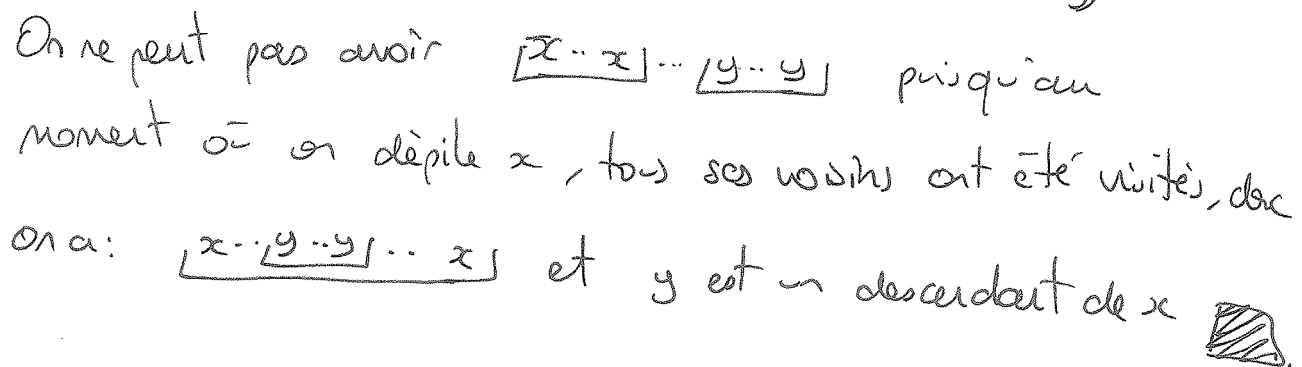 On ne peut pas avoir x .. x ... y .. y puisqu'au
moment où on dépile x, tous ses voisins ont été visités, donc
on a : x .. y .. y .. x et y est un descendant de x